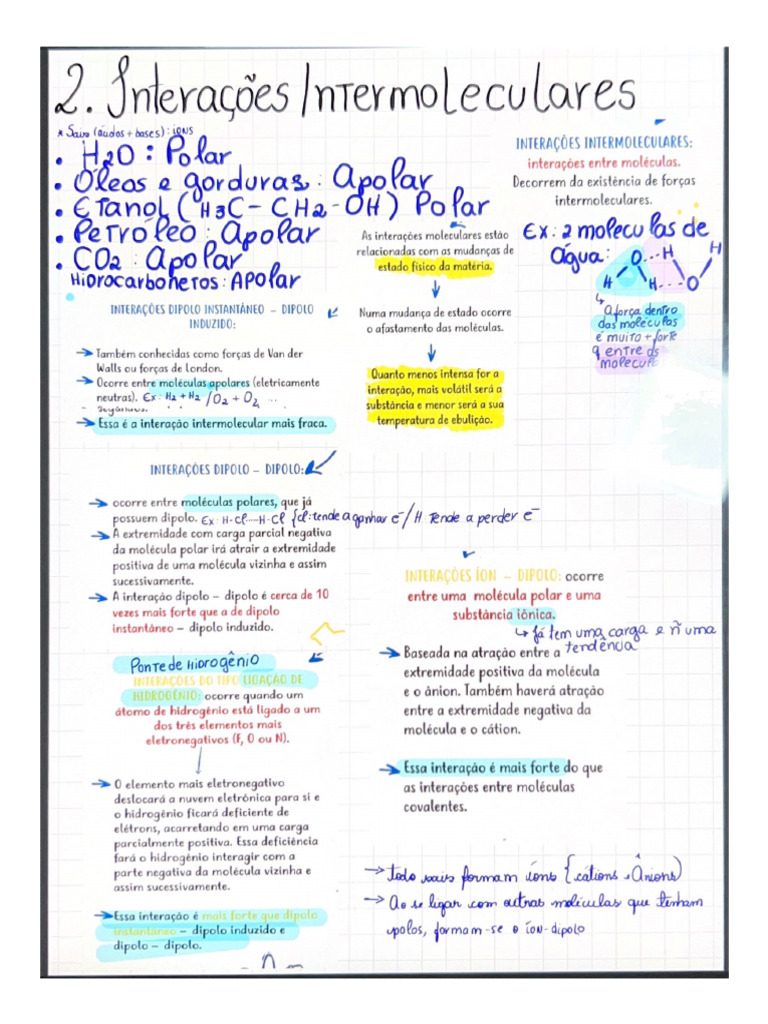 2. Interações Intermoleculares
* Sais (ácidos + bases): íons
• H2O : Polar
• Óleos e gorduras: Apolar
• Etanol (H3C - CH2 - OH) Polar
• Petróleo: Apolar
• CO2: Apolar
Hidrocarbonetos: APolar
INTERAÇÕES INTERMOLECULARES:
interações entre moléculas.
Decorrem da existência de forças
intermoleculares.
Ex: 2 moleculas de
água:
O...H
H
H
H...O
a força dentro
das moléculas
é muito + forte
q entre as
molécula
As interações moleculares estão
relacionadas com as mudanças de
estado físico da matéria.
Numa mudança de estado ocorre
o afastamento das moléculas.
Quanto menos intensa for a
interação, mais volátil será a
substância e menor será a sua
temperatura de ebulição.
INTERAÇÕES DIPOLO INSTANTÂNEO – DIPOLO
INDUZIDO:
Também conhecidas como forças de Van der
Walls ou forças de London.
Ocorre entre moléculas apolares (eletricamente
neutras). Ex: H2 + H2 / O2 + O2 ...
Essa é a interação intermolecular mais fraca.
INTERAÇÕES DIPOLO – DIPOLO:
ocorre entre moléculas polares, que já
possuem dipolo. Ex: H-Cl....H-Cl {Cl: tende a ganhar e-/ H Tende a perder e-
A extremidade com carga parcial negativa
da molécula polar irá atrair a extremidade
positiva de uma molécula vizinha e assim
sucessivamente.
A interação dipolo – dipolo é cerca de 10
vezes mais forte que a de dipolo
instantâneo – dipolo induzido.
Ponte de Hidrogênio
INTERAÇÕES DO TIPO LIGAÇÃO DE
HIDROGÊNIO: ocorre quando um
átomo de hidrogênio está ligado a um
dos três elementos mais
eletronegativos (F, O ou N).
O elemento mais eletronegativo
deslocará a nuvem eletrônica para si e
o hidrogênio ficará deficiente de
elétrons, acarretando em uma carga
parcialmente positiva. Essa deficiência
fará o hidrogênio interagir com a
parte negativa da molécula vizinha e
assim sucessivamente.
Essa interação é mais forte que dipolo
instantâneo – dipolo induzido e
dipolo – dipolo.
INTERAÇÕES ÍON – DIPOLO: ocorre
entre uma molécula polar e uma
substância iônica.
Já tem uma carga e ñ uma
tendência
Baseada na atração entre a
extremidade positiva da molécula
e o ânion. Também haverá atração
entre a extremidade negativa da
molécula e o cátion.
Essa interação é mais forte do que
as interações entre moléculas
covalentes.
→ todo sais formam íons {cátions e Ânions)
→ Ao se ligar com outras moléculas que tenham
polos, formam-se o íon-dipolo